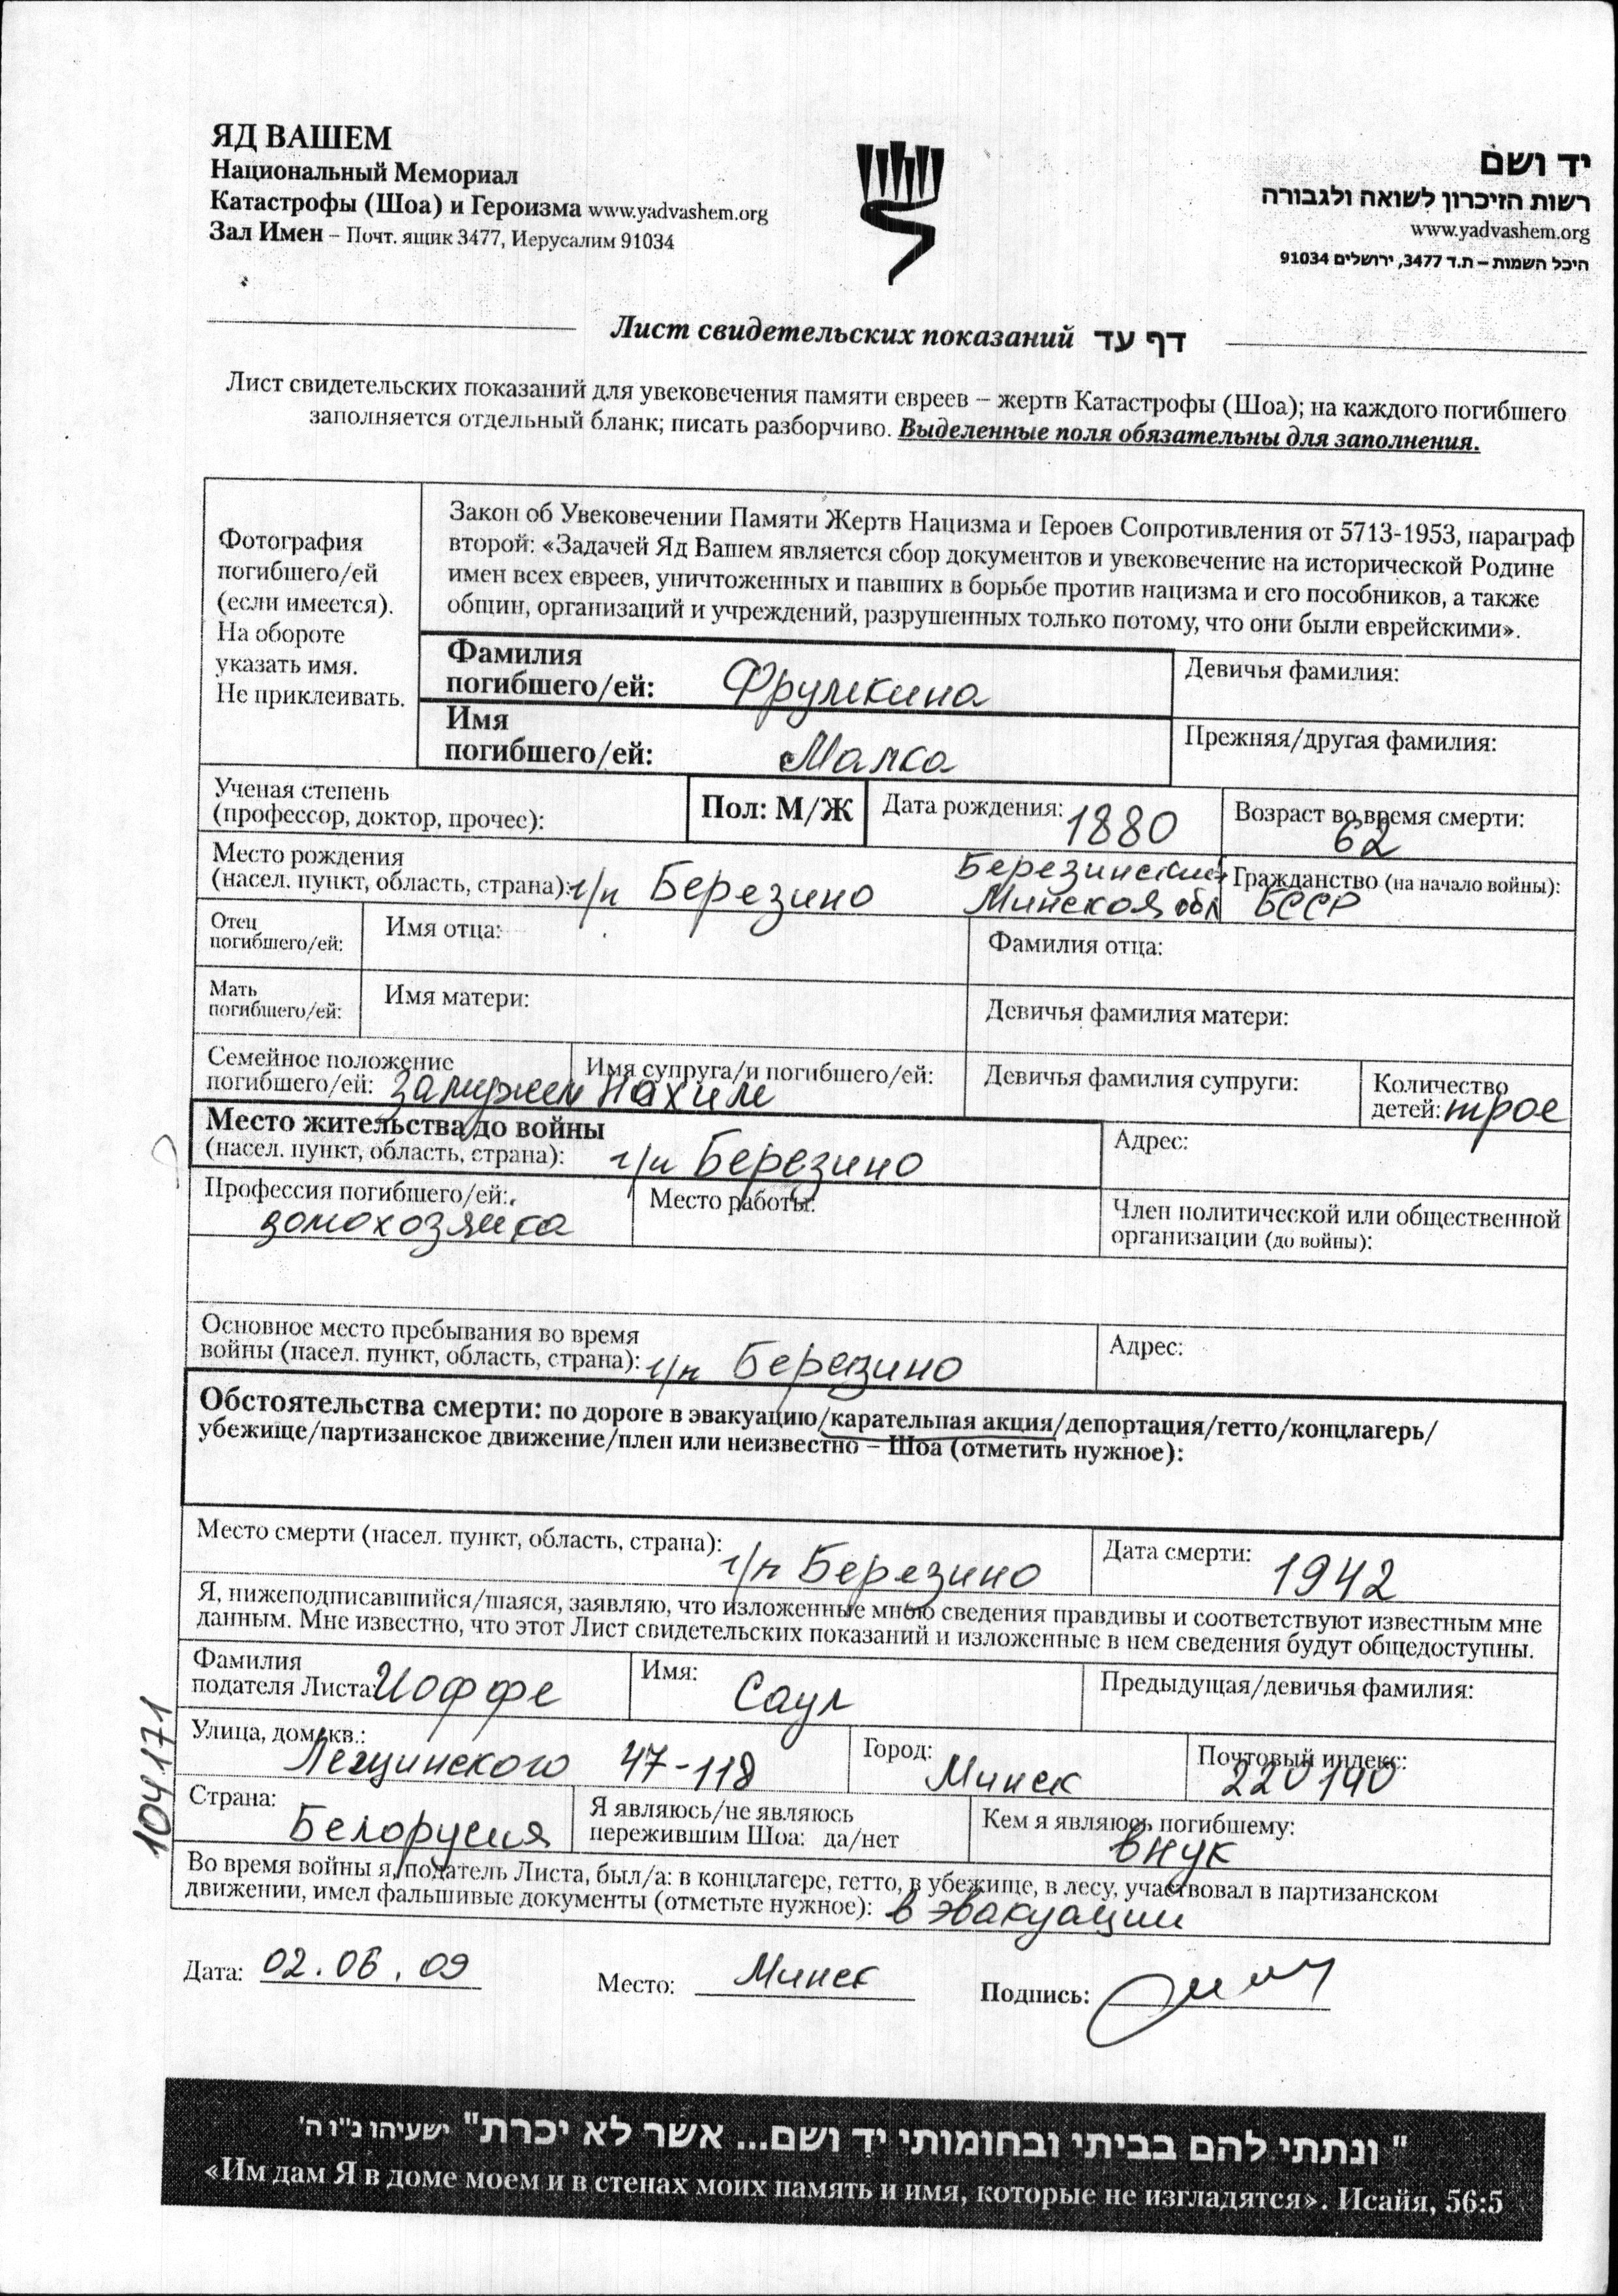 ЯД ВАШЕМ
Национальный Мемориал
Катастрофы (Шоа) и Героизма www.yadvashem.org
Зал Имен – Почт. ящик 3477, Иерусалим 91034
יד ושם
רשות הזיכרון לשואה ולגבורה
www.yadvashem.org
היכל השמות – ת.ד 3477, ירושלים 91034
Лист свидетельских показаний דף עד
Лист свидетельских показаний для увековечения памяти евреев – жертв Катастрофы (Шоа); на каждого погибшего
заполняется отдельный бланк; писать разборчиво. Выделенные поля обязательны для заполнения.
Фотография
погибшего/ей
(если имеется).
На обороте
указать имя.
Не приклеивать.
Закон об Увековечении Памяти Жертв Нацизма и Героев Сопротивления от 5713-1953, параграф
второй: «Задачей Яд Вашем является сбор документов и увековечение на исторической Родине
имен всех евреев, уничтоженных и павших в борьбе против нацизма и его пособников, а также
общин, организаций и учреждений, разрушенных только потому, что они были еврейскими».
Фамилия
погибшего/ей: Фрумкина
Девичья фамилия:
Имя
погибшего/ей: Малка
Прежняя/другая фамилия:
Ученая степень
(профессор, доктор, прочес):
Пол: М/Ж
Дата рождения: 1880
Возраст во время смерти:
62
Место рождения
(насел. пункт, область, страна): г/п Березино
Березинский
Минской обл
Гражданство (на начало войны):
БССР
Отец
погибшего/ей:
Имя отца:
Фамилия отца:
Мать
погибшего/ей:
Имя матери:
Девичья фамилия матери:
Семейное положение
погибшего/ей: замужем
Имя супруга/и погибшего/ей:
Нахим
Девичья фамилия супруги:
Количество
детей: трое
Место жительства до войны
(насел. пункт, область, страна): г/п Березино
Адрес:
Профессия погибшего/ей:
домохозяйка
Место работы:
Член политической или общественной
организации (до войны):
Основное место пребывания во время
войны (насел. пункт, область, страна): г/п Березино
Адрес:
Обстоятельства смерти: по дороге в эвакуацию/карательная акция/депортация/гетто/концлагерь/
убежище/партизанское движение/плен или неизвестно – Шоа (отметить нужное):
Место смерти (насел. пункт, область, страна): г/п Березино
Дата смерти: 1942
Я, нижеподписавшийся/шаяся, заявляю, что изложенные мною сведения правдивы и соответствуют известным мне
данным. Мне известно, что этот Лист свидетельских показаний и изложенные в нем сведения будут общедоступны.
Фамилия
подателя Листа Иоффе
Имя: Саул
Предыдущая/девичья фамилия:
Улица, дом, кв.:
Лещинского 47-118
Город:
Минск
Почтовый индекс:
220140
Страна:
Белоруссия
Я являюсь/не являюсь
пережившим Шоа: да/нет
Кем я являюсь погибшему:
внук
Во время войны я, податель Листа, был/а: в концлагере, гетто, в убежище, в лесу, участвовал в партизанском
движении, имел фальшивые документы (отметьте нужное): в эвакуации
104171
Дата: 02.06.09
Место: Минск
Подпись:
" ונתתי להם בביתי ובחומותי יד ושם... אשר לא יכרת" ישעיהו נ"ו ה'
«Им дам Я в доме моем и в стенах моих память и имя, которые не изгладятся». Исайя, 56:5